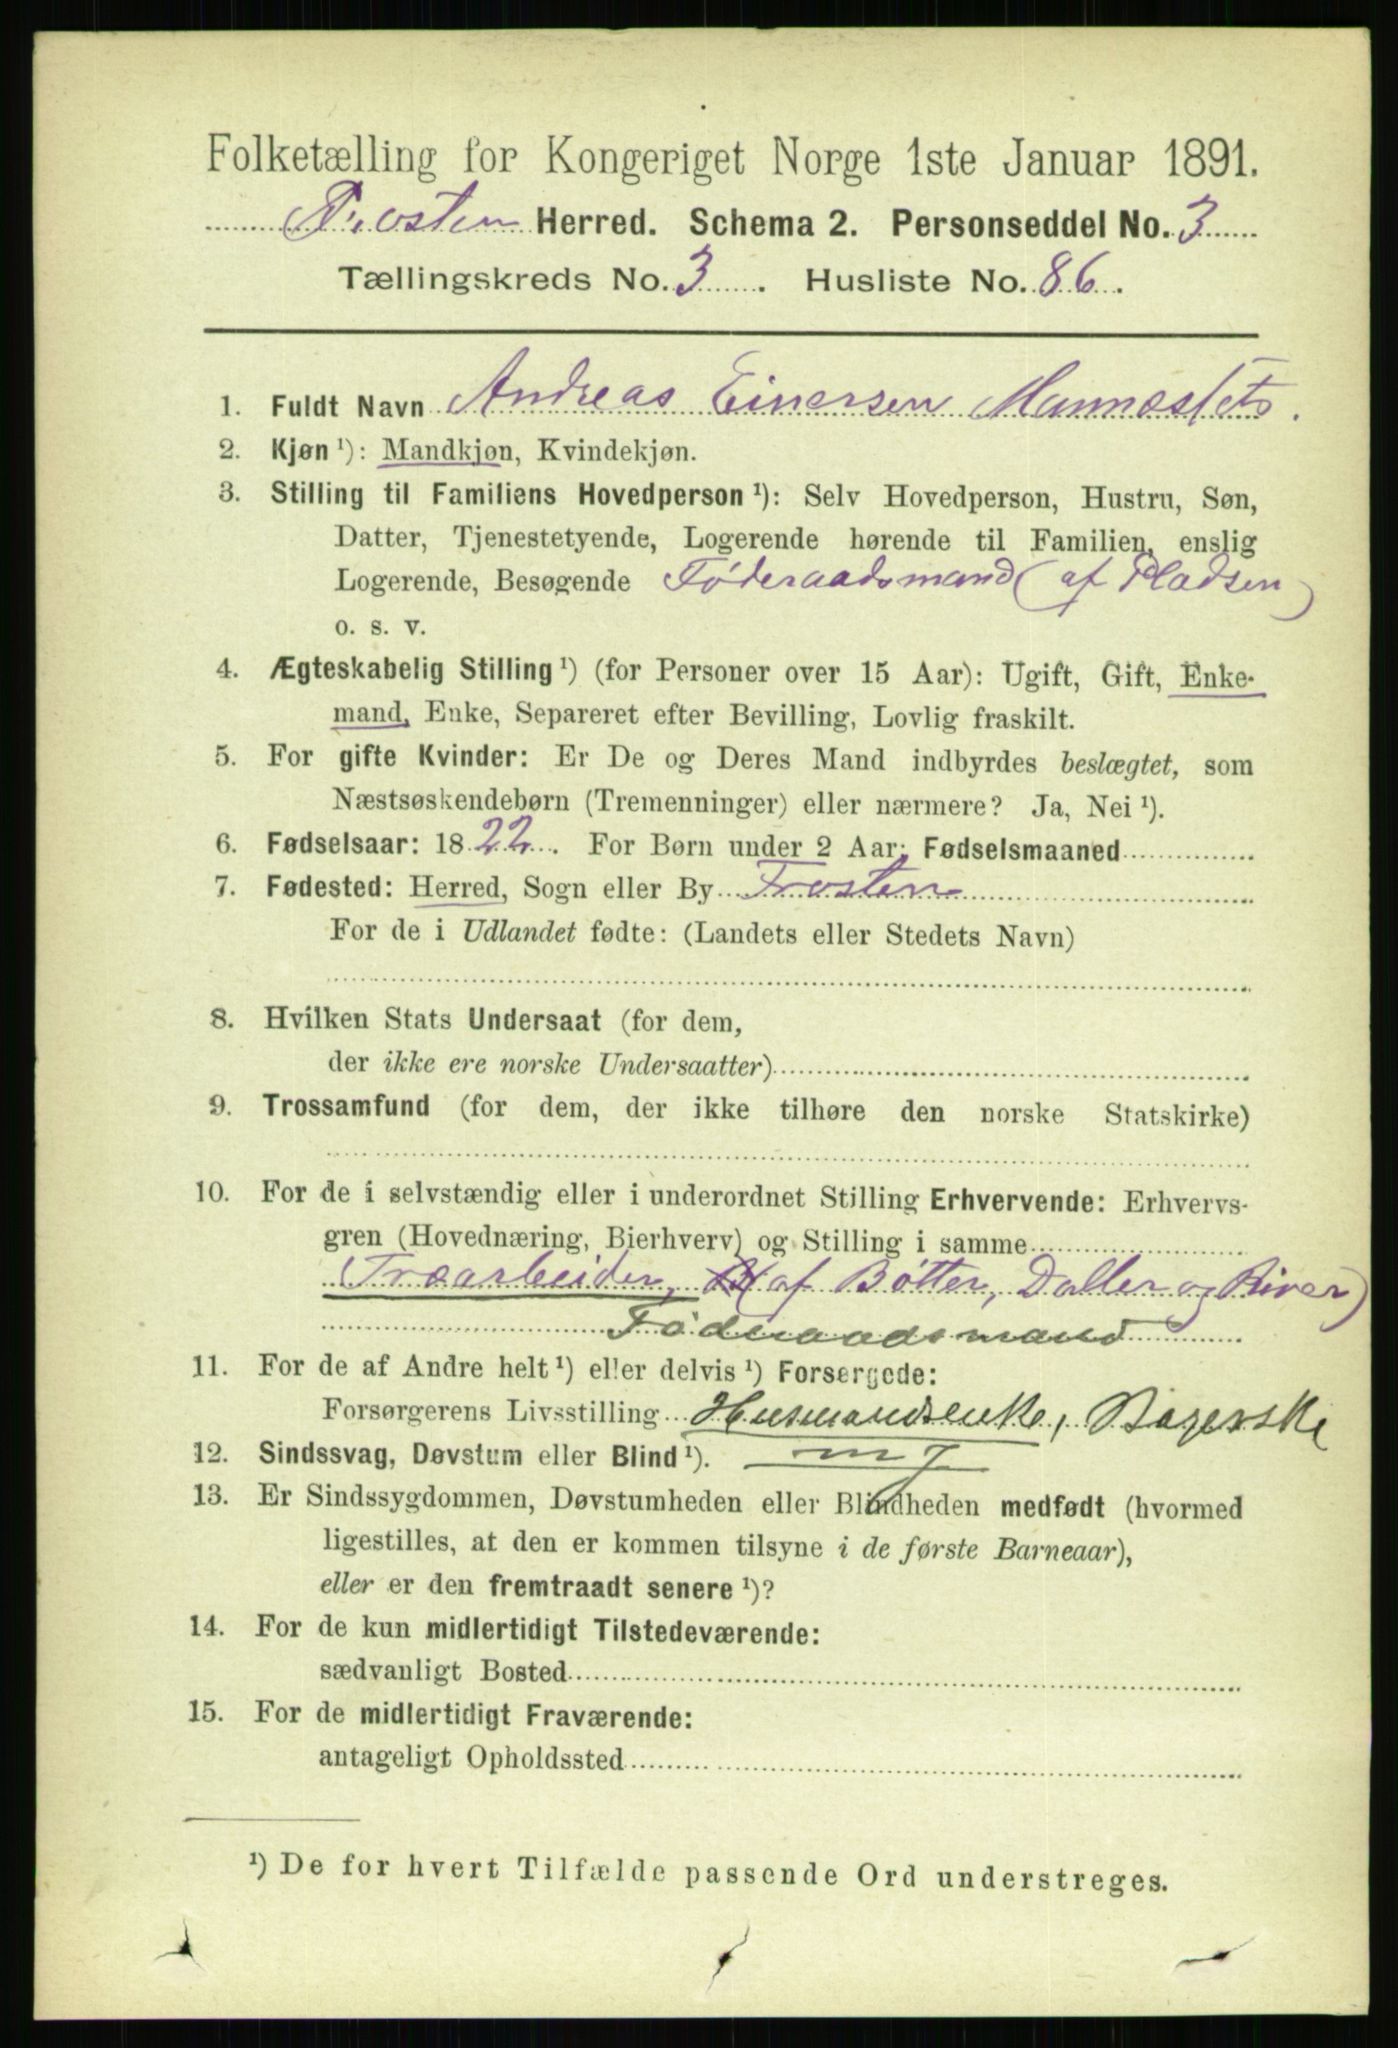 Folketælling for Kongeriget Norge 1ste Januar 1891.
Frosten Herred. Schema 2. Personseddel No. 3
Tællingskreds No. 3. Husliste No. 86.
1. Fuldt Navn Andreas Einersen Mannæslets.
2. Kjøn ¹): Mandkjøn, Kvindekjøn.
3. Stilling til Familiens Hovedperson ¹): Selv Hovedperson, Hustru, Søn,
Datter, Tjenestetyende, Logerende hørende til Familien, enslig
Logerende, Besøgende Føderaadsmand (af Pladsen)
o. s. v.
4. Ægteskabelig Stilling ¹) (for Personer over 15 Aar): Ugift, Gift, Enke-
mand, Enke, Separeret efter Bevilling, Lovlig fraskilt.
5. For gifte Kvinder: Er De og Deres Mand indbyrdes beslægtet, som
Næstsøskendebørn (Tremenninger) eller nærmere? Ja, Nei ¹).
6. Fødselsaar: 1822. For Børn under 2 Aar: Fødselsmaaned
7. Fødested: Herred, Sogn eller By Frosten
For de i Udlandet fødte: (Landets eller Stedets Navn)
8. Hvilken Stats Undersaat (for dem,
der ikke ere norske Undersaatter)
9. Trossamfund (for dem, der ikke tilhøre den norske Statskirke)
10. For de i selvstændig eller i underordnet Stilling Erhvervende: Erhvervs-
gren (Hovednæring, Bierhverv) og Stilling i samme
Træarbeider, (af Bøtter, Daller og River)
Føderaadsmand
11. For de af Andre helt ¹) eller delvis ¹) Forsørgede:
Forsørgerens Livsstilling Husmandsenke, Bagerske
12. Sindssvag, Døvstum eller Blind ¹). m j
13. Er Sindssygdommen, Døvstumheden eller Blindheden medfødt (hvormed
ligestilles, at den er kommen tilsyne i de første Barneaar),
eller er den fremtraadt senere ¹)?
14. For de kun midlertidigt Tilstedeværende:
sædvanligt Bosted
15. For de midlertidigt Fraværende:
antageligt Opholdssted
¹) De for hvert Tilfælde passende Ord understreges.